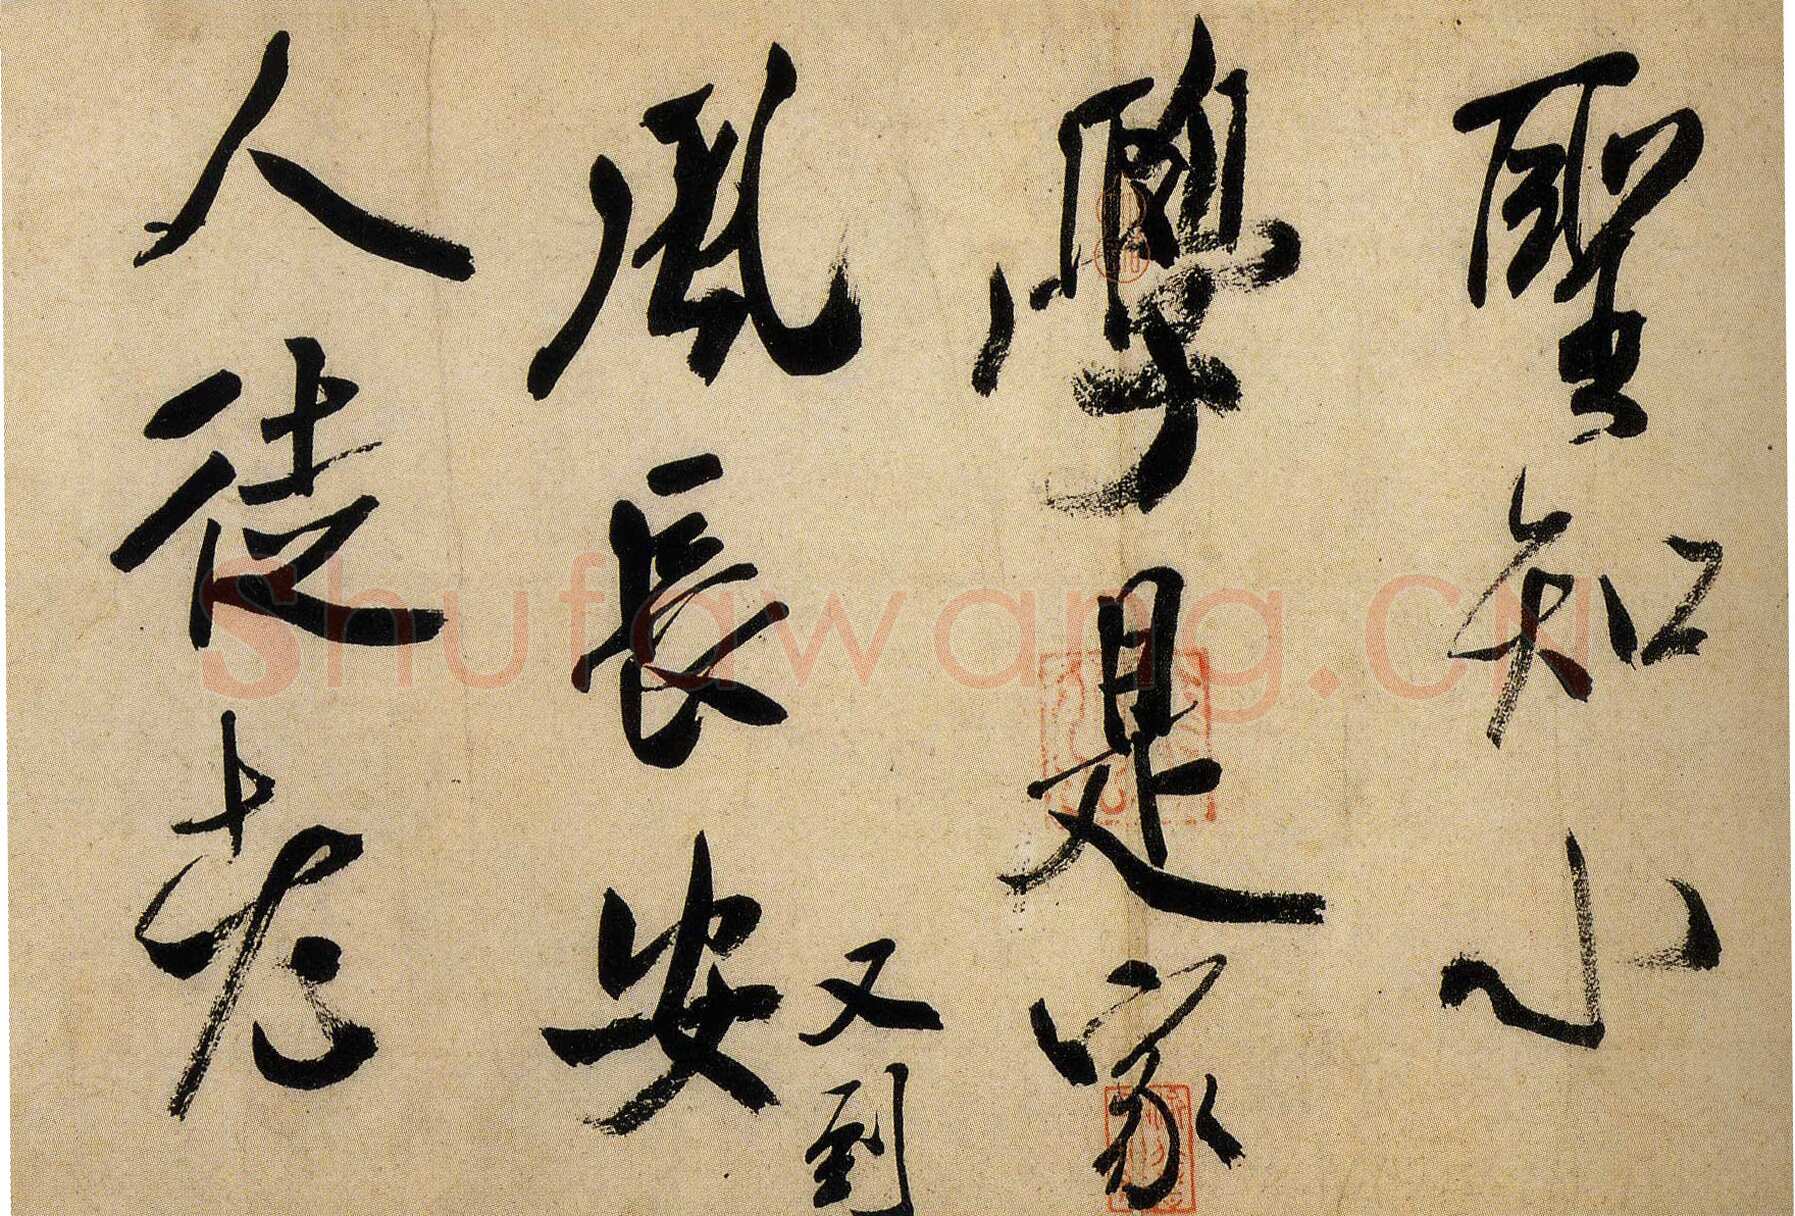 聖知小
學是家
風長安
又到
人徒老
Shufawang.CN